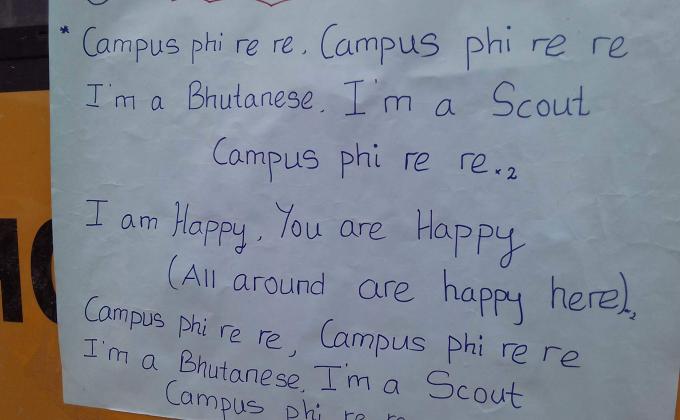 * Campus phi re re. Campus phi re re
I'm a Bhutanese. I'm a Scout
Campus phi re re. x2
I am Happy, You are Happy
(All around are happy here).x2
Campus phi re re, Campus phi re re
I'm a Bhutanese. I'm a Scout
Campus phi re re